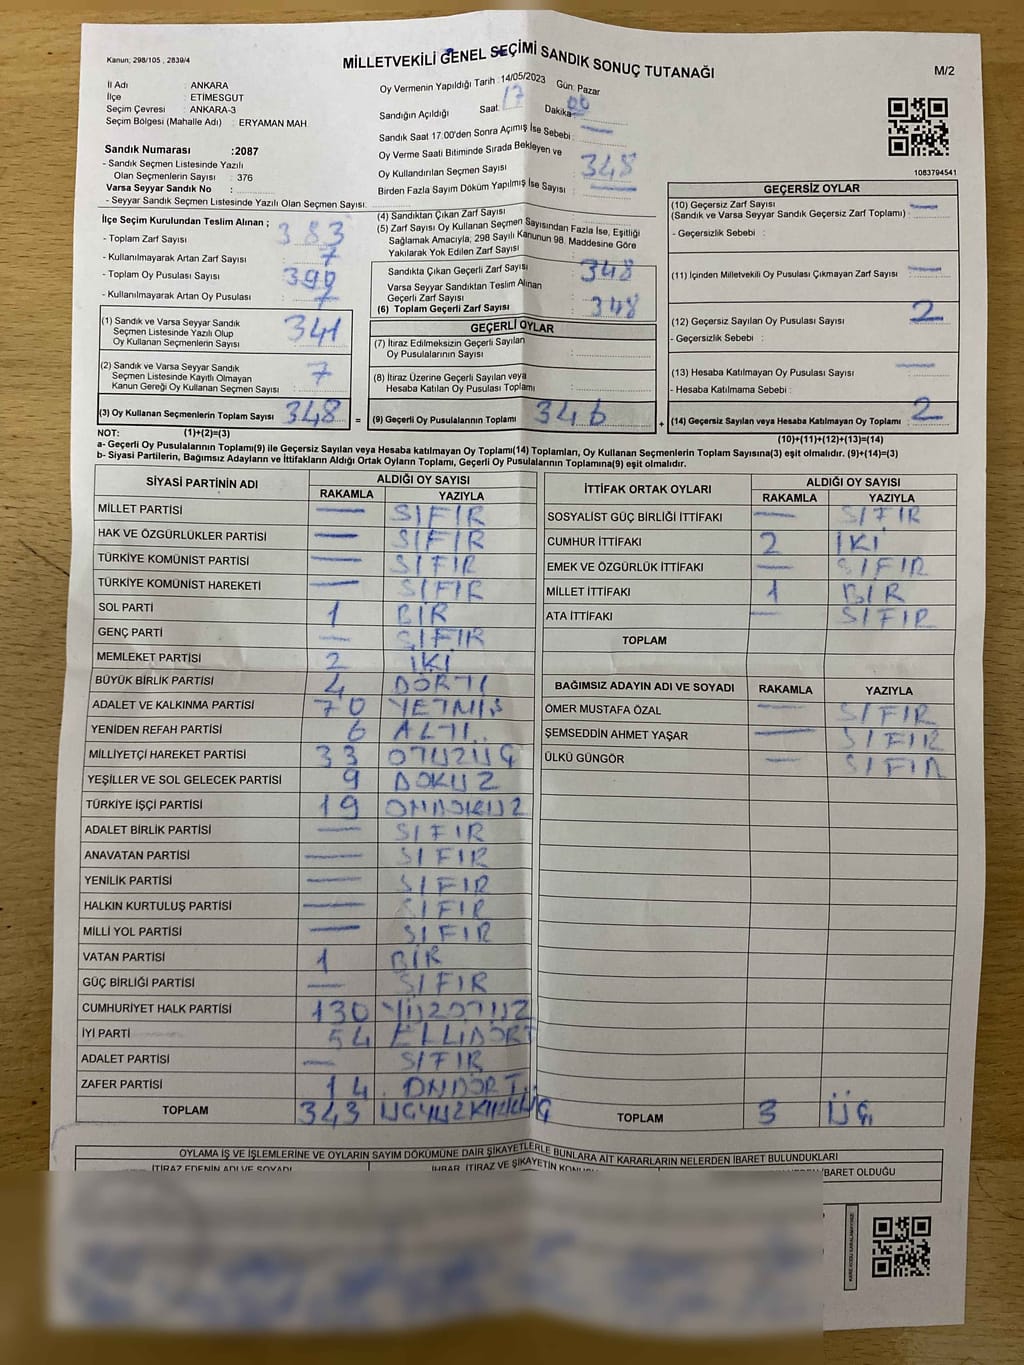 Kanun; 298/105 , 2839/4
MİLLETVEKİLİ GENEL SEÇİMİ SANDIK SONUÇ TUTANAĞI
M/2
İl Adı : ANKARA
İlçe : ETİMESGUT
Seçim Çevresi : ANKARA-3
Seçim Bölgesi (Mahalle Adı) : ERYAMAN MAH.
Oy Vermenin Yapıldığı Tarih : 14/05/2023 Gün: Pazar
Sandığın Açıldığı Saat: 17 Dakika: 00
Sandık Saat 17:00'den Sonra Açımış İse Sebebi: —
Oy Verme Saati Bitiminde Sırada Bekleyen ve
Oy Kullandırılan Seçmen Sayısı : 348
Birden Fazla Sayım Döküm Yapılmış İse Sayısı : —
1083794541
Sandık Numarası :2087
- Sandık Seçmen Listesinde Yazılı
Olan Seçmenlerin Sayısı : 376
Varsa Seyyar Sandık No :
- Seyyar Sandık Seçmen Listesinde Yazılı Olan Seçmen Sayısı:
İlçe Seçim Kurulundan Teslim Alınan ;
- Toplam Zarf Sayısı : 383
- Kullanılmayarak Artan Zarf Sayısı : 7
- Toplam Oy Pusulası Sayısı : 390
- Kullanılmayarak Artan Oy Pusulası : 7
(1) Sandık ve Varsa Seyyar Sandık
Seçmen Listesinde Yazılı Olup
Oy Kullanan Seçmenlerin Sayısı : 341
(2) Sandık ve Varsa Seyyar Sandık
Seçmen Listesinde Kayıtlı Olmayan
Kanun Gereği Oy Kullanan Seçmen Sayısı : 7
(3) Oy Kullanan Seçmenlerin Toplam Sayısı : 348 =
(4) Sandıktan Çıkan Zarf Sayısı :
(5) Zarf Sayısı Oy Kullanan Seçmen Sayısından Fazla İse, Eşitliği
Sağlamak Amacıyla; 298 Sayılı Kanunun 98. Maddesine Göre
Yakılarak Yok Edilen Zarf Sayısı :
Sandıkta Çıkan Geçerli Zarf Sayısı : 348
Varsa Seyyar Sandıktan Teslim Alınan
Geçerli Zarf Sayısı :
(6) Toplam Geçerli Zarf Sayısı : 348
GEÇERLİ OYLAR
(7) İtiraz Edilmeksizin Geçerli Sayılan
Oy Pusulalarının Sayısı :
(8) İtiraz Üzerine Geçerli Sayılan veya
Hesaba Katılan Oy Pusulası Toplamı :
(9) Geçerli Oy Pusulalarının Toplamı : 346 +
GEÇERSİZ OYLAR
(10) Geçersiz Zarf Sayısı
(Sandık ve Varsa Seyyar Sandık Geçersiz Zarf Toplamı) : —
- Geçersizlik Sebebi :
(11) İçinden Milletvekili Oy Pusulası Çıkmayan Zarf Sayısı : —
(12) Geçersiz Sayılan Oy Pusulası Sayısı : 2
- Geçersizlik Sebebi :
(13) Hesaba Katılmayan Oy Pusulası Sayısı : —
- Hesaba Katılmama Sebebi :
(14) Geçersiz Sayılan veya Hesaba Katılmayan Oy Toplamı : 2
NOT: (1)+(2)=(3)
(10)+(11)+(12)+(13)=(14)
a- Geçerli Oy Pusulalarının Toplamı(9) ile Geçersiz Sayılan veya Hesaba katılmayan Oy Toplamı(14) Toplamları, Oy Kullanan Seçmenlerin Toplam Sayısına(3) eşit olmalıdır. (9)+(14)=(3)
b- Siyasi Partilerin, Bağımsız Adayların ve İttifakların Aldığı Ortak Oyların Toplamı, Geçerli Oy Pusulalarının Toplamına(9) eşit olmalıdır.
SİYASİ PARTİNİN ADI ALDIĞI OY SAYISI
RAKAMLA YAZIYLA
MİLLET PARTİSİ — SIFIR
HAK VE ÖZGÜRLÜKLER PARTİSİ — SIFIR
TÜRKİYE KOMÜNİST PARTİSİ — SIFIR
TÜRKİYE KOMÜNİST HAREKETİ — SIFIR
SOL PARTİ 1 BİR
GENÇ PARTİ — SIFIR
MEMLEKET PARTİSİ 2 İKİ
BÜYÜK BİRLİK PARTİSİ 4 DÖRTI
ADALET VE KALKINMA PARTİSİ 70 YETMİŞ
YENİDEN REFAH PARTİSİ 6 ALTI
MİLLİYETÇİ HAREKET PARTİSİ 33 OTUZÜÇ
YEŞİLLER VE SOL GELECEK PARTİSİ 9 DOKUZ
TÜRKİYE İŞÇİ PARTİSİ 19 ONDOKUZ
ADALET BİRLİK PARTİSİ — SIFIR
ANAVATAN PARTİSİ — SIFIR
YENİLİK PARTİSİ — SIFIR
HALKIN KURTULUŞ PARTİSİ — SIFIR
MİLLİ YOL PARTİSİ — SIFIR
VATAN PARTİSİ 1 BİR
GÜÇ BİRLİĞİ PARTİSİ — SIFIR
CUMHURİYET HALK PARTİSİ 130 YÜZOTUZ
İYİ PARTİ 54 ELLİDÖRT
ADALET PARTİSİ — SIFIR
ZAFER PARTİSİ 14 ONDÖRT
TOPLAM 343 ÜÇYÜZKIRKÜÇ
İTTİFAK ORTAK OYLARI ALDIĞI OY SAYISI
RAKAMLA YAZIYLA
SOSYALİST GÜÇ BİRLİĞİ İTTİFAKI — SIFIR
CUMHUR İTTİFAKI 2 İKİ
EMEK VE ÖZGÜRLÜK İTTİFAKI — SIFIR
MİLLET İTTİFAKI 1 BİR
ATA İTTİFAKI — SIFIR
TOPLAM
BAĞIMSIZ ADAYIN ADI VE SOYADI RAKAMLA YAZIYLA
ÖMER MUSTAFA ÖZAL — SIFIR
ŞEMSEDDİN AHMET YAŞAR — SIFIR
ÜLKÜ GÜNGÖR — SIFIR
TOPLAM 3 ÜÇ
OYLAMA İŞ VE İŞLEMLERİNE VE OYLARIN SAYIM DÖKÜMÜNE DAİR ŞİKAYETLERLE BUNLARA AİT KARARLARIN NELERDEN İBARET BULUNDUKLARI
İTİRAZ EDENİN ADI VE SOYADI İHBAR, İTİRAZ VE ŞİKAYETİN İBARET OLDUĞU